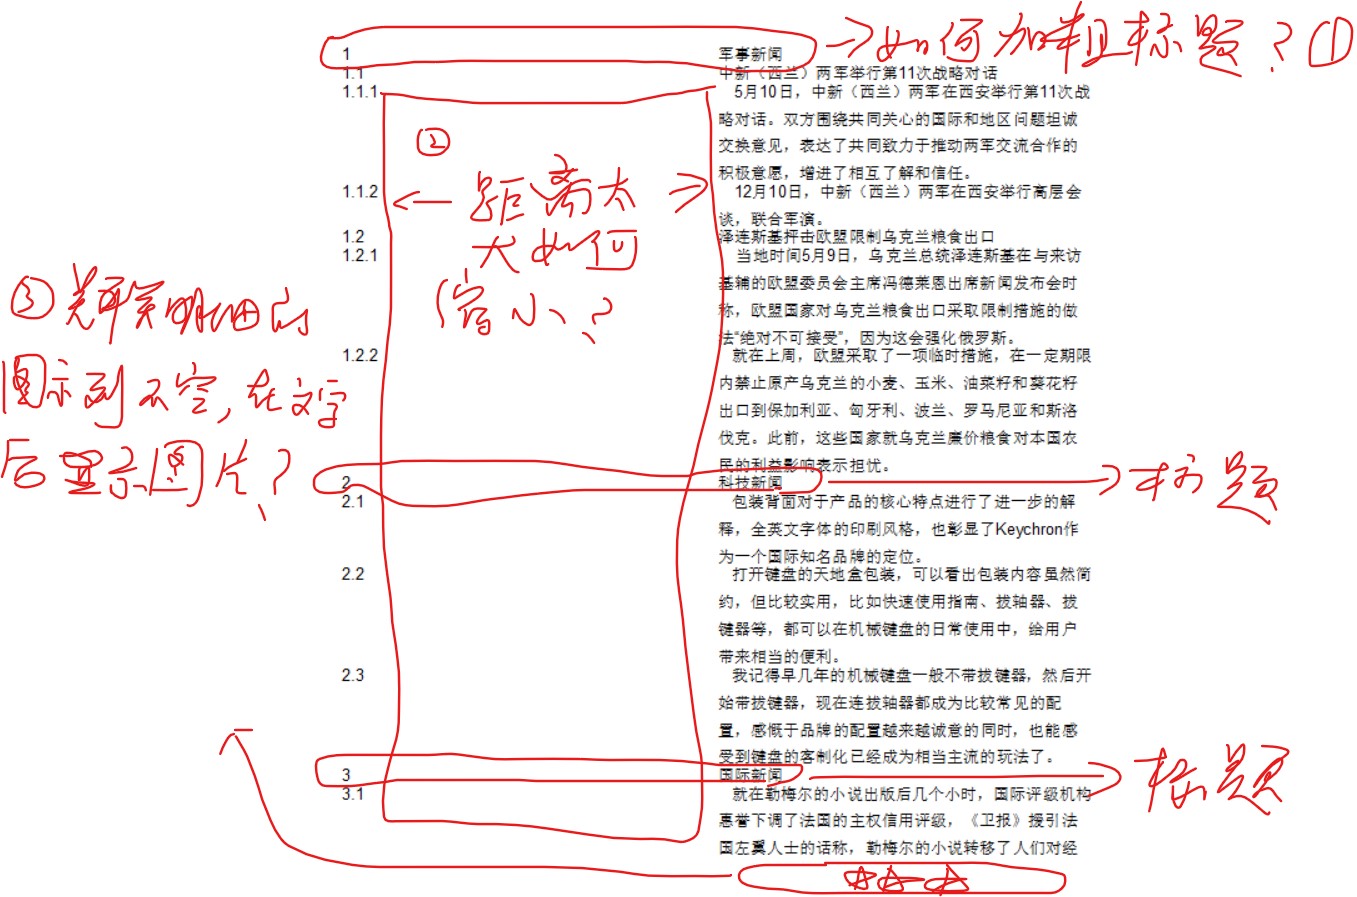 1 军事新闻
→如何加粗标题？①
1.1 中新（西兰）两军举行第11次战略对话
1.1.1 5月10日，中新（西兰）两军在西安举行第11次战
略对话。双方围绕共同关心的国际和地区问题坦诚
交换意见，表达了共同致力于推动两军交流合作的
积极意愿，增进了相互了解和信任。
1.1.2 12月10日，中新（西兰）两军在西安举行高层会
谈，联合军演。
1.2 泽连斯基抨击欧盟限制乌克兰粮食出口
1.2.1 当地时间5月9日，乌克兰总统泽连斯基在与来访
基辅的欧盟委员会主席冯德莱恩出席新闻发布会时
称，欧盟国家对乌克兰粮食出口采取限制措施的做
法“绝对不可接受”，因为这会强化俄罗斯。
1.2.2 就在上周，欧盟采取了一项临时措施，在一定期限
内禁止原产乌克兰的小麦、玉米、油菜籽和葵花籽
出口到保加利亚、匈牙利、波兰、罗马尼亚和斯洛
伐克。此前，这些国家就乌克兰廉价粮食对本国农
民的利益影响表示担忧。
②
距离太
大如何
缩小？
③ 明细的
图示列不空，在文字
后显示图片？
2 科技新闻
标题
2.1 包装背面对于产品的核心特点进行了进一步的解
释，全英文字体的印刷风格，也彰显了Keychron作
为一个国际知名品牌的定位。
2.2 打开键盘的天地盒包装，可以看出包装内容虽然简
约，但比较实用，比如快速使用指南、拔轴器、拔
键器等，都可以在机械键盘的日常使用中，给用户
带来相当的便利。
2.3 我记得早几年的机械键盘一般不带拔键器，然后开
始带拔键器，现在连拔轴器都成为比较常见的配
置，感慨于品牌的配置越来越诚意的同时，也能感
受到键盘的客制化已经成为相当主流的玩法了。
3 国际新闻
标题
3.1 就在勒梅尔的小说出版后几个小时，国际评级机构
惠誉下调了法国的主权信用评级，《卫报》援引法
国左翼人士的话称，勒梅尔的小说转移了人们对经